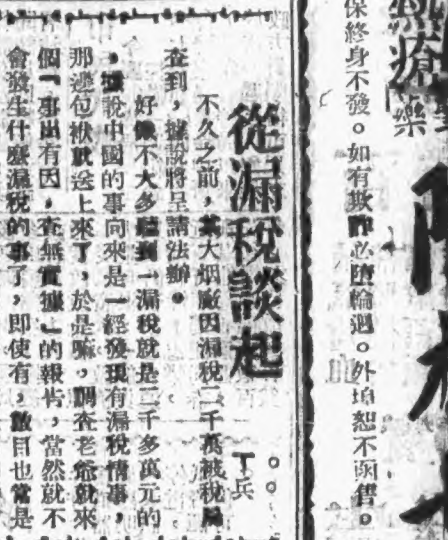 熱瘡藥
保終身不發。如有欺詐必墮輪迴。外埠恕不函售。
從漏稅談起
丁兵
不久之前，某大烟廠因漏稅二千萬被稅局
查到，據說將呈請法辦。
好像不大多聽到一漏稅就是二千多萬元的
，據說中國的事向來是一經發現有漏稅情事，
那邊包袱就送上來了，於是嘛，調查老爺就來
個「事出有因，查無實據」的報告，當然就不
會發生什麼漏稅的事了，即使有，數目也當是